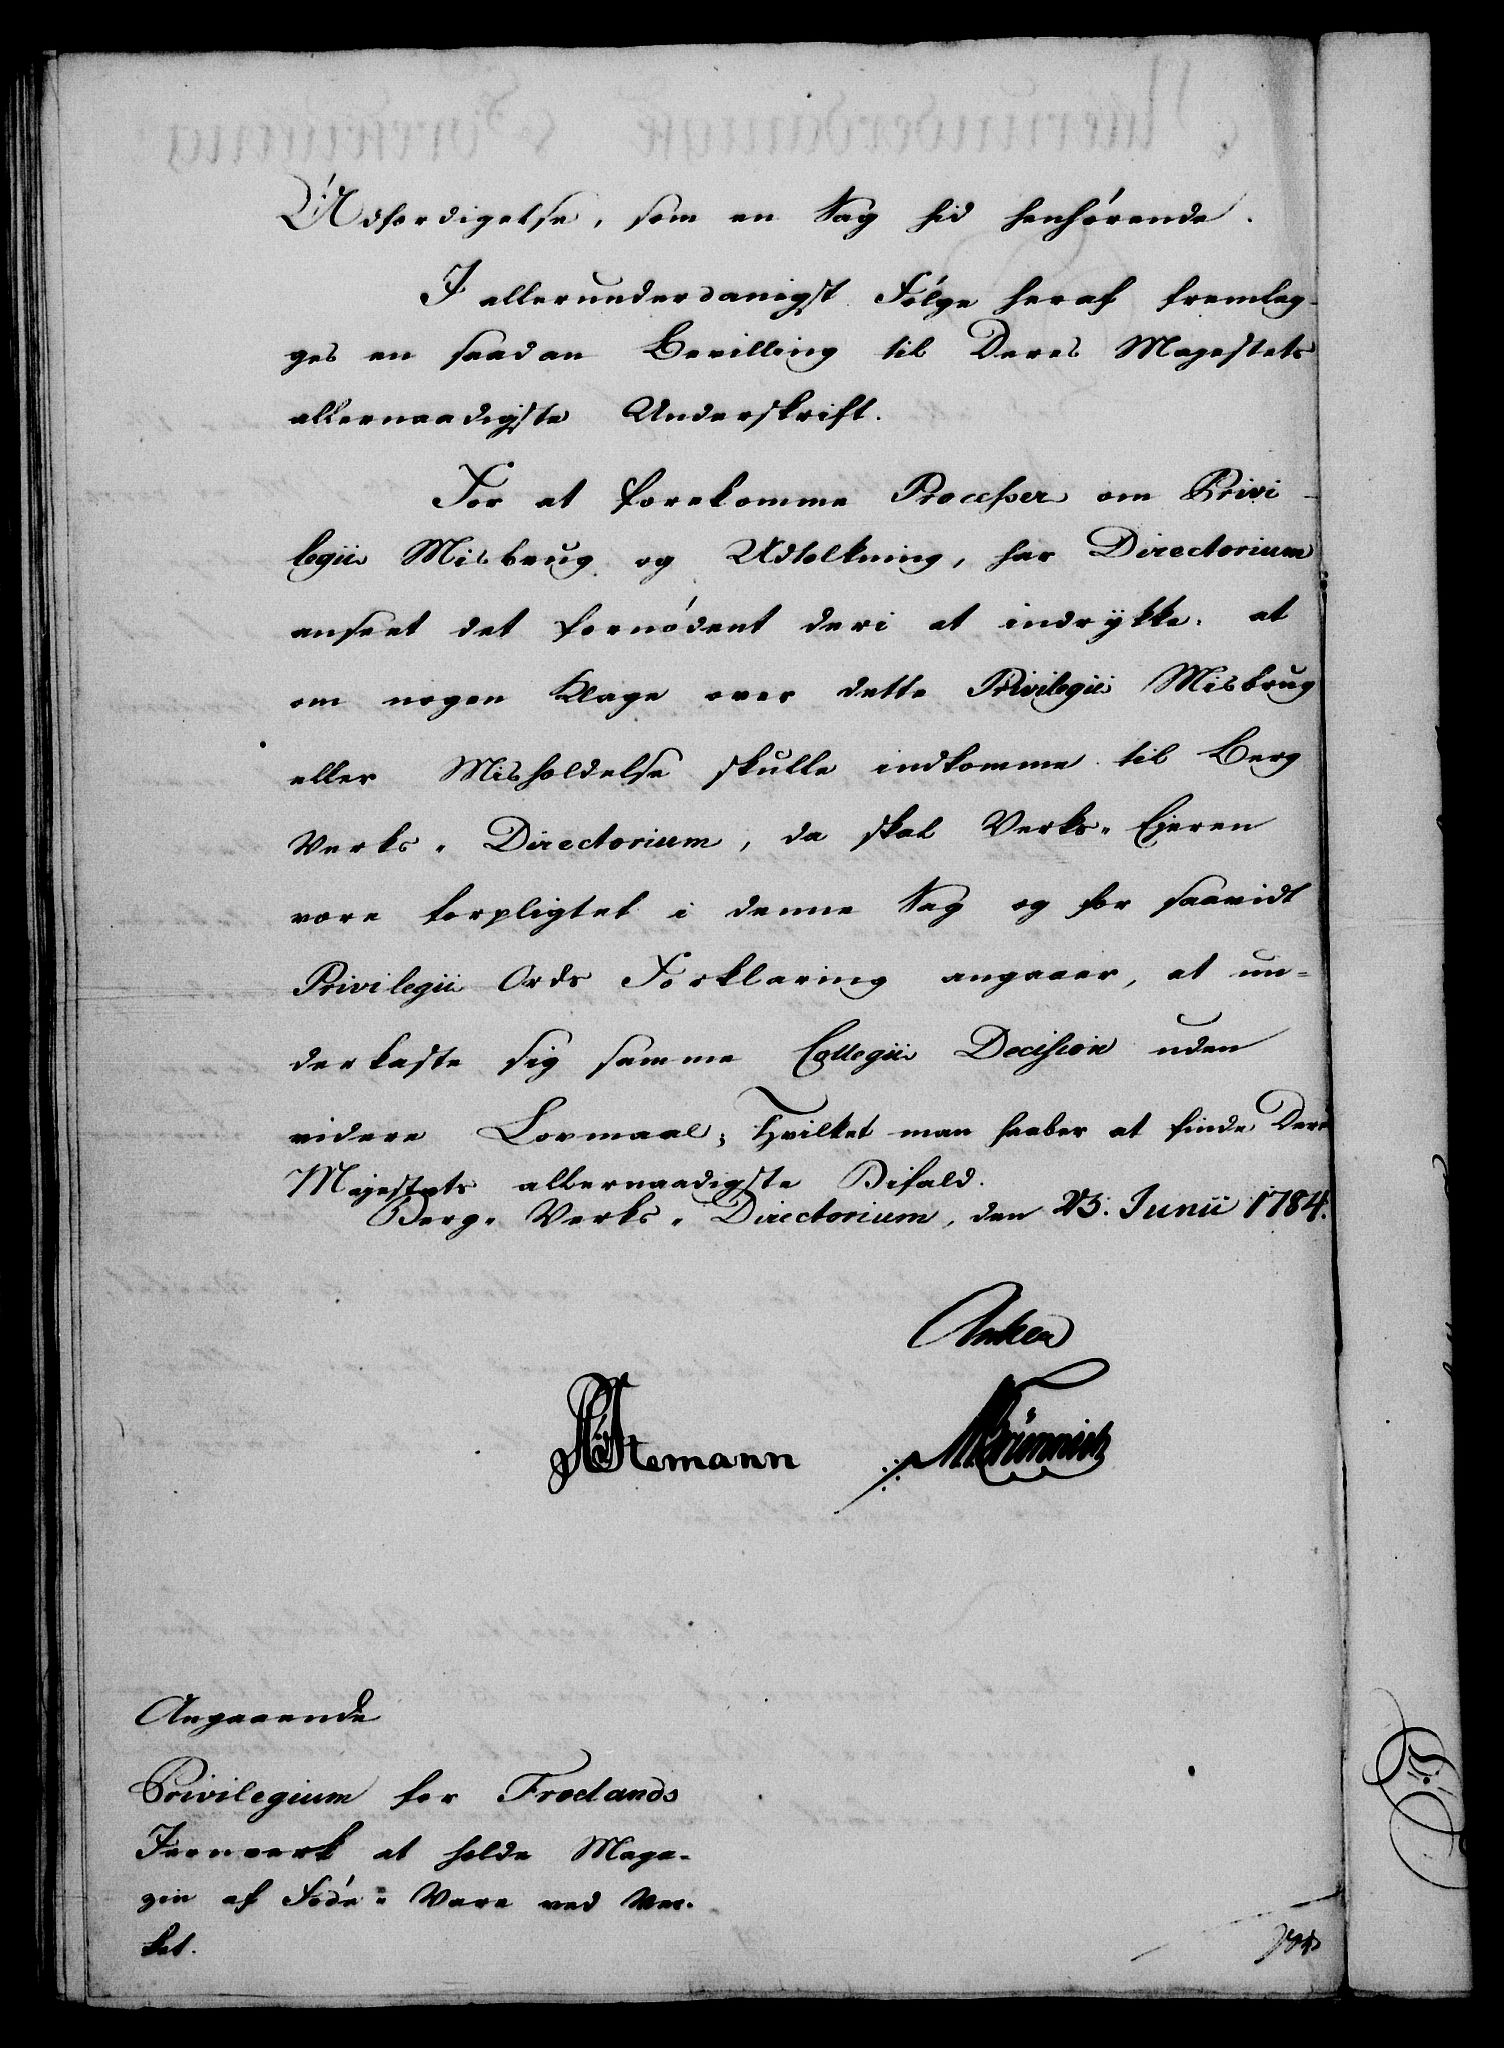 Udfærdigelse, som en Sag hid henhørende.
I allerunderdanigst Følge heraf fremlæg-
ges en saadan Bevilling til Deres Majestets
allernaadigste Underskrift.
For at forekomme Processer om Privi-
legii Misbrug og Udtolkning, har Directorium
anseet det fornødent deri at indrykke, at
om nogen Klage over dette Privilegii Misbrug
eller Misholdelse skulle indkomme til Berg
Verks-Directorium, da skal Verks-Ejeren
være forpligtet i denne Sag og for saavidt
Privilegii Ords Forklaring angaaer, at un-
derkaste sig samme Collegii Decision uden
videre Lovmaal; Hvilket man haaber at finde Deres
Majestets allernaadigste Bifald.
Berg-Verks-Directorium, den 23. Junii 1784.
Anker
Stemann MBrünnich
Angaaende
Privilegium for Frolands
Jernværk at holde Maga-
zin af Føde-Vare ved Ver-
ket.